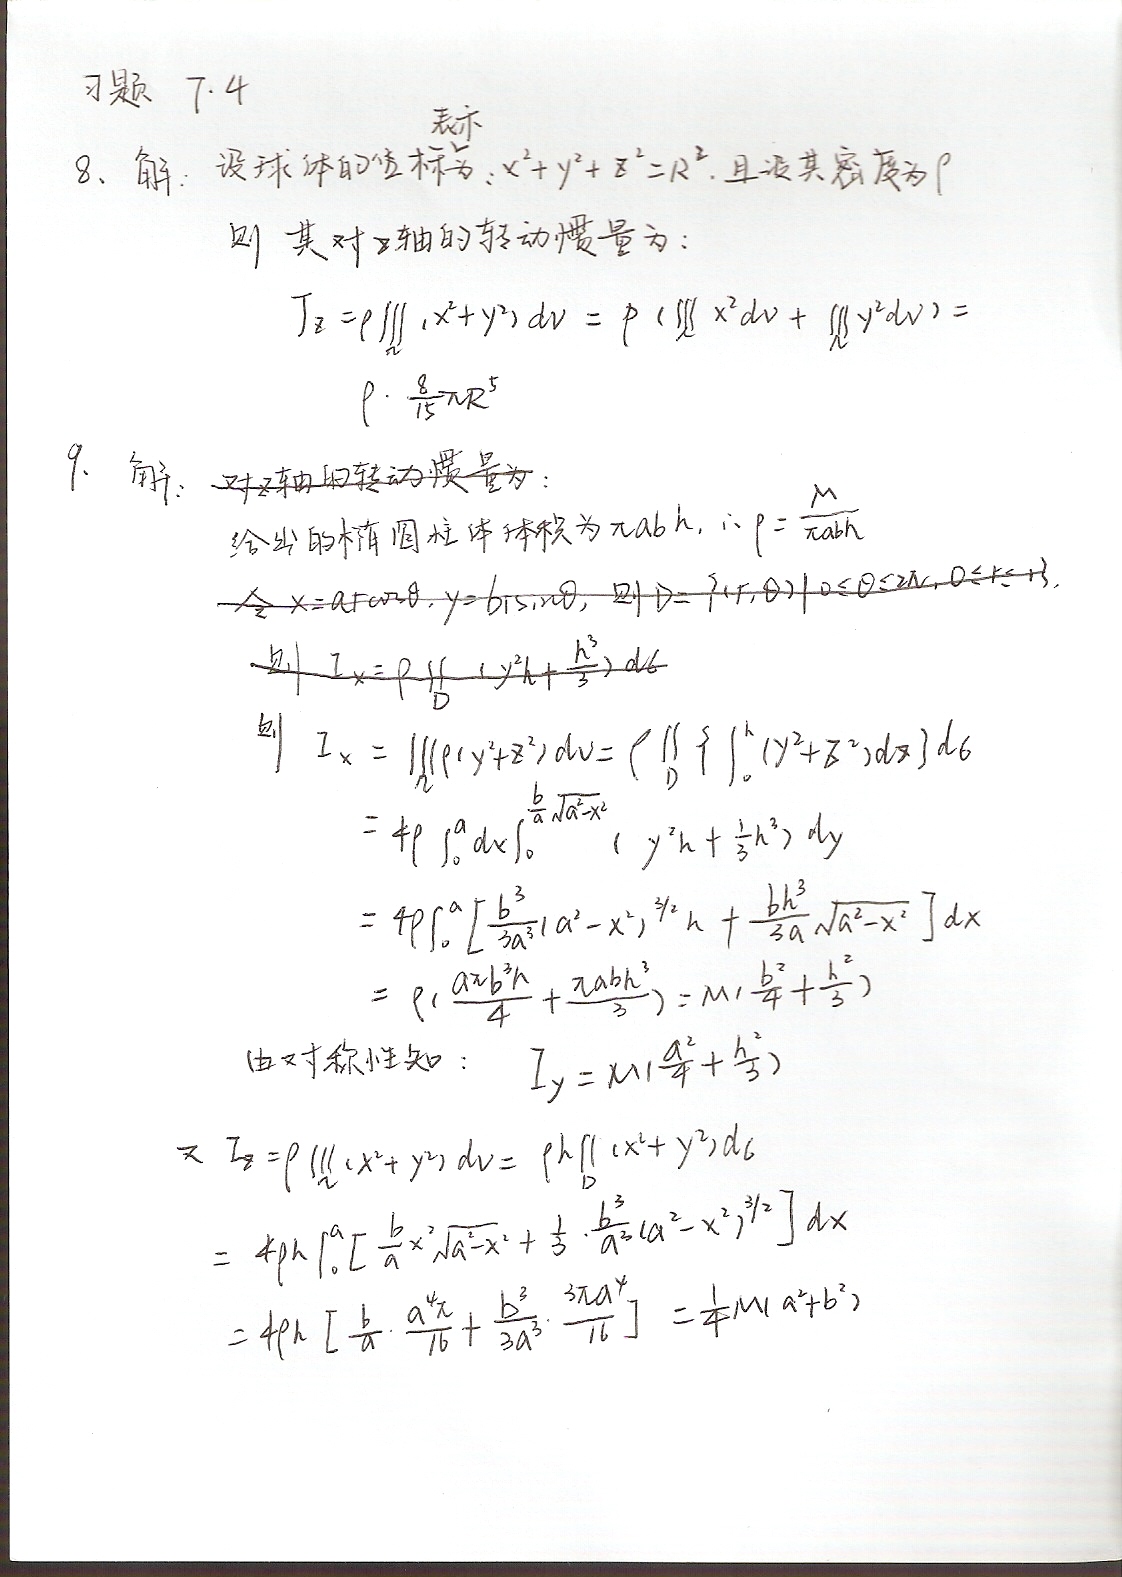 习题 7.4
表示
8、解：设球体的位标为：x²+y²+z²=R². 且设其密度为ρ
则 其对z轴的转动惯量为：
J_z=ρ∭_Ω(x²+y²)dv = ρ(∭_Ω x²dv + ∭_Ω y²dv) =
ρ· 8/15 πR⁵
9、解：对z轴的转动惯量为：
给出的椭圆柱体体积为πabh, ∴ρ= M/πabh
令 x=arcosθ. y=brsinθ, 则D={(r,θ)|0≤θ≤2π, 0≤r≤1}.
则 I_x=ρ∬_D(y²h+h³/3)dσ
则 I_x = ∭_Ω ρ(y²+z²)dv=ρ∬_D{∫_0^h(y²+z²)dz}dσ
= 4ρ∫_0^a dx∫_0^{b/a √(a²-x²)} (y²h+1/3 h³)dy
= 4ρ∫_0^a[b³/3a³(a²-x²)^{3/2}h + bh³/3a √(a²-x²)]dx
= ρ(aπb³h/4 + πabh³/3)=M(b²/4+h²/3)
由对称性知： I_y=M(a²/4+h²/3)
又 I_z=ρ∭_Ω(x²+y²)dv= ρh∬_D(x²+y²)dσ
= 4ρh∫_0^a[b/a x²√(a²-x²)+1/3·b³/a³(a²-x²)^{3/2}]dx
=4ρh[b/a·a⁴π/16+b³/3a³·3πa⁴/16] =1/4M(a²+b²)